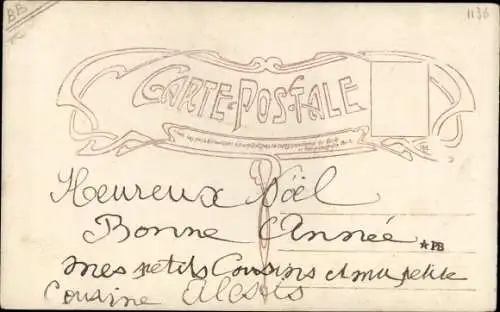 BB
1136
CARTE-POSTALE
Heureux Nöel
Bonne Année
★PB
mes petits Cousins et ma petite
Cousine